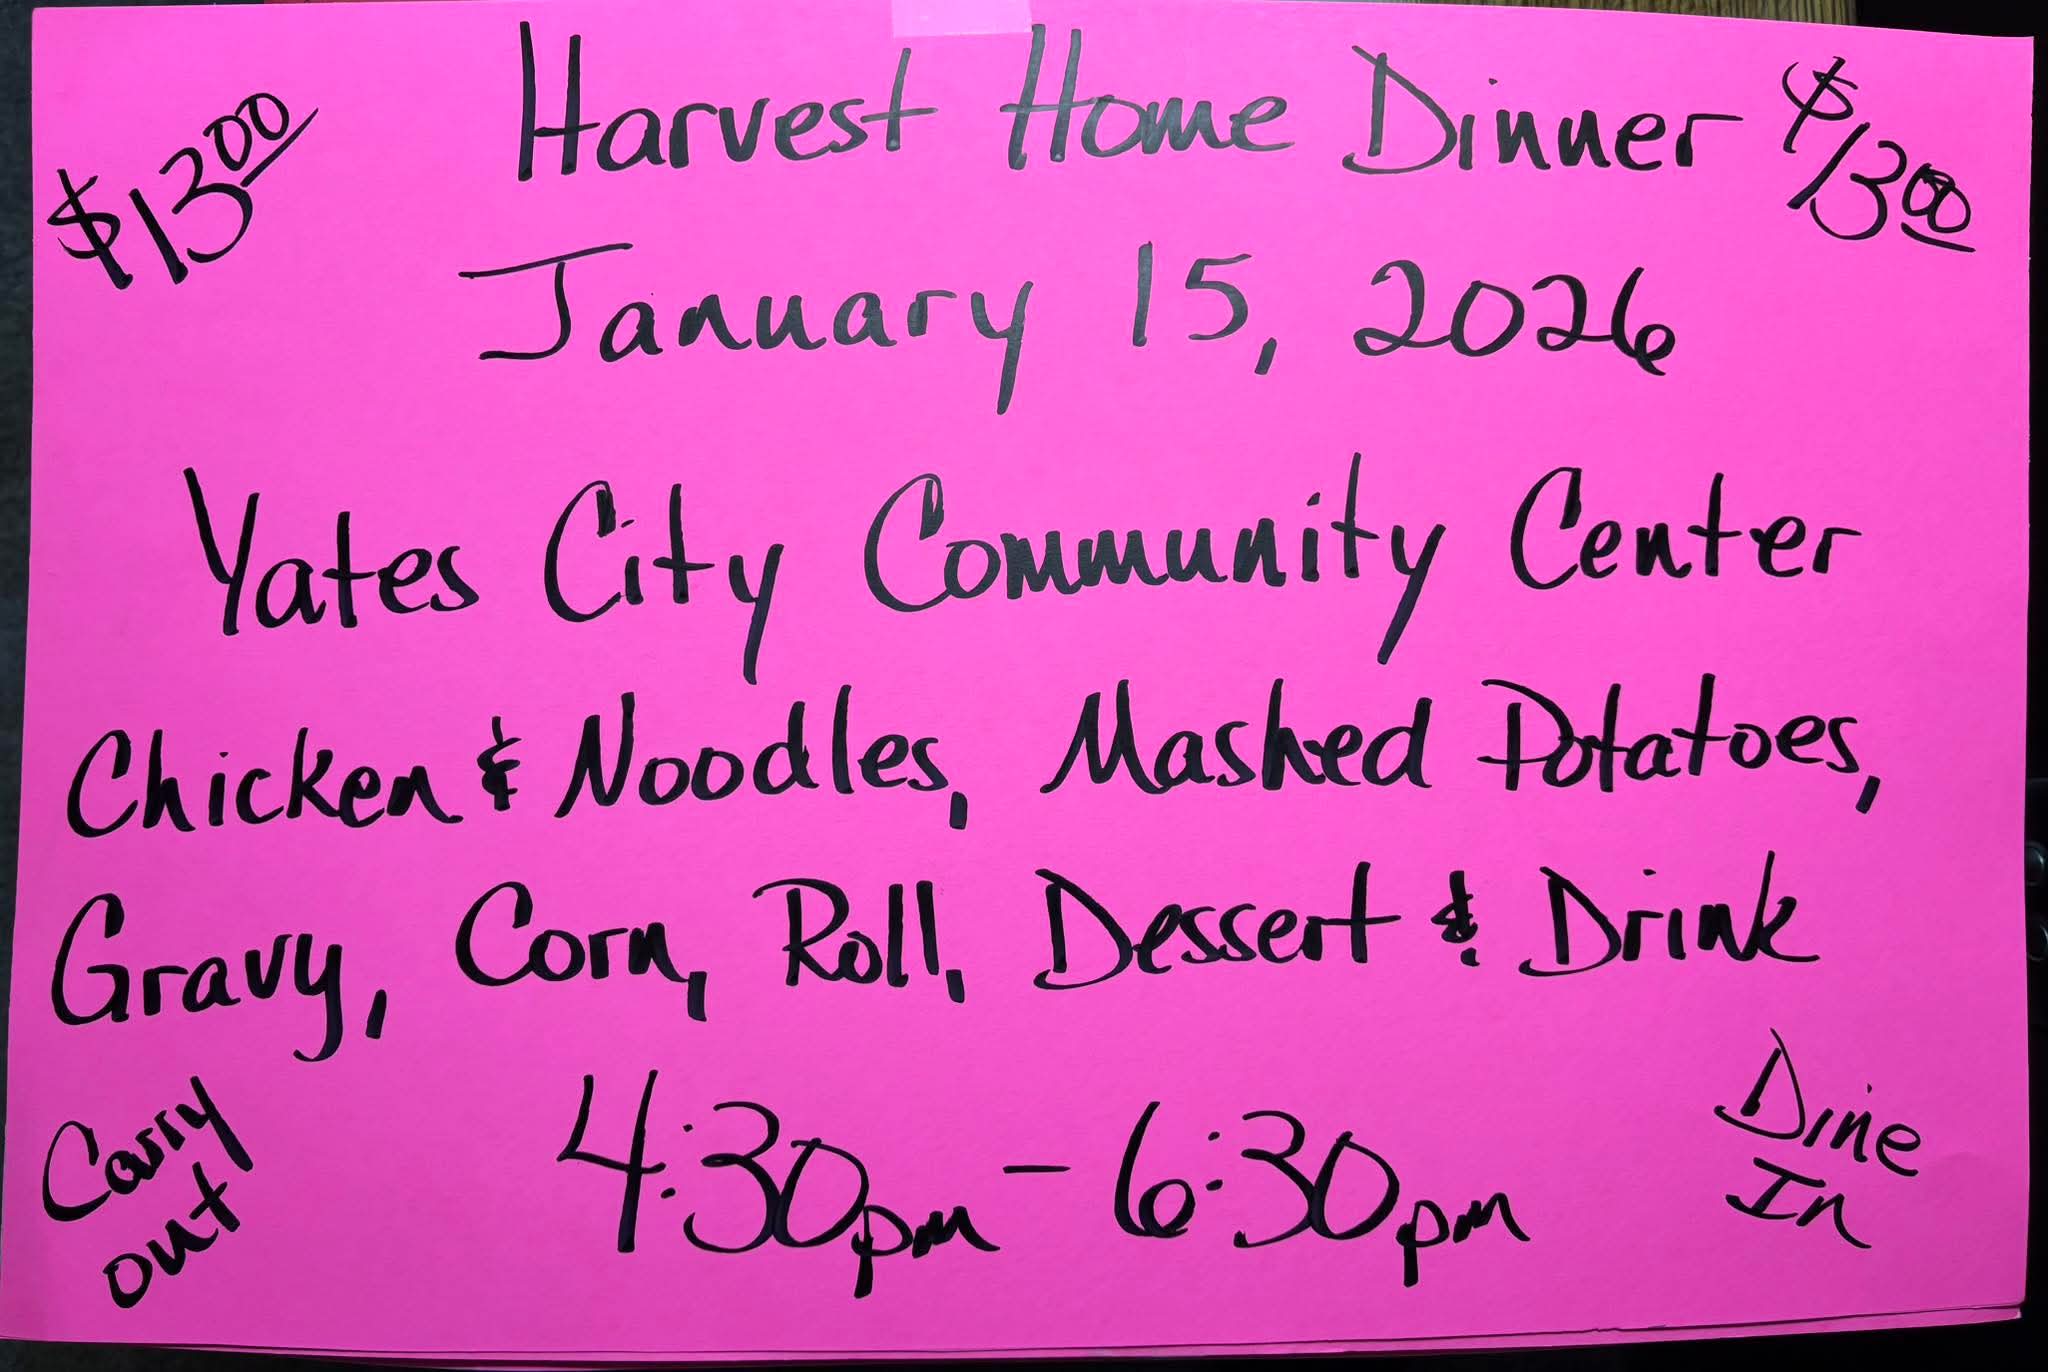 $13.00
Harvest Home Dinner
$13.00
January 15, 2026
Yates City Community Center
Chicken & Noodles, Mashed Potatoes,
Gravy, Corn, Roll, Dessert & Drink
Carry
out
4:30pm - 6:30pm
Dine
In